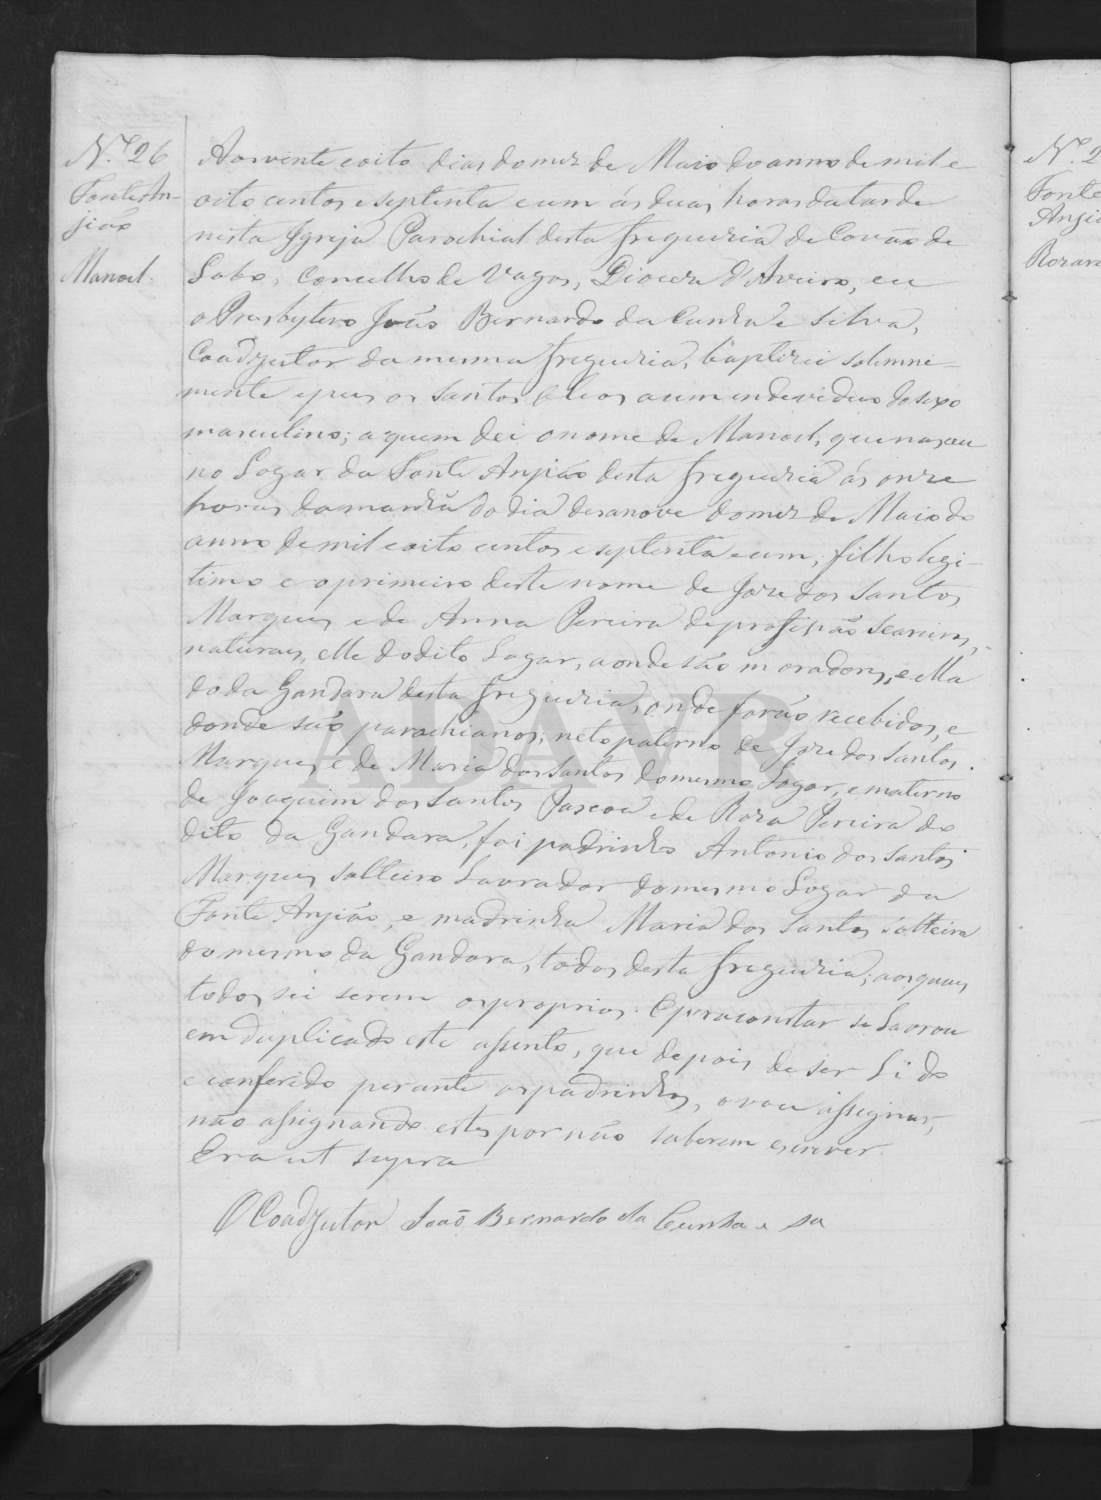 N.º 26
Fonte An-
jião
Manoel.
Aos vinte e oito dias do mez de Maio do anno de mil e
oito centos e septenta e um ás duas horas da tarde
nésta Igreja Parochial desta freguezia de Covão do
Lobo, Concelho de Vagos, Diocese d'Aveiro, eu
o Presbytero João Bernardo da Cunha e Silva,
Coadjutor da mesma freguezia, baptizei solemne-
mente e pus os santos oleos a um individuo do sexo
masculino; a quem dei o nome de Manoel, que nasceu
no Logar da Fonte Anjião desta freguezia ás onze
horas da manhã do dia desanove do mez de Maio do
anno de mil e oito centos e septenta e um, filho legi-
timo e o primeiro deste nome de Joze dos Santos
Marques e de Anna Pereira de profissão Seareiros,
naturaes, elle do dito Logar, aonde são moradores, e ella
do da Gandara desta freguezia, onde forão recebidos, e
donde são parochianos; neto paterno de Joze dos Santos
Marques e de Maria dos Santos do mesmo Logar, e materno
de Joaquim dos Santos Pascoa e de Roza Pereira do
dito da Gandara, foi padrinho Antonio dos Santos
Marques solteiro Lavrador do mesmo Logar da
Fonte Anjião, e madrinha Maria dos Santos solteira
do mesmo da Gandara, todos desta freguezia; aos quaes
todos sei serem os proprios. E para constar se Lavrou
em duplicado este assento, que depois de ser Lido
e conferido perante os padrinhos, o vou assignar,
não assignando estes por não saberem escrever.
Era ut supra
O Coadjutor João Bernardo da Cunha e Sa
N.º 2
Fonte
Anjiã
Roza
ADAVR